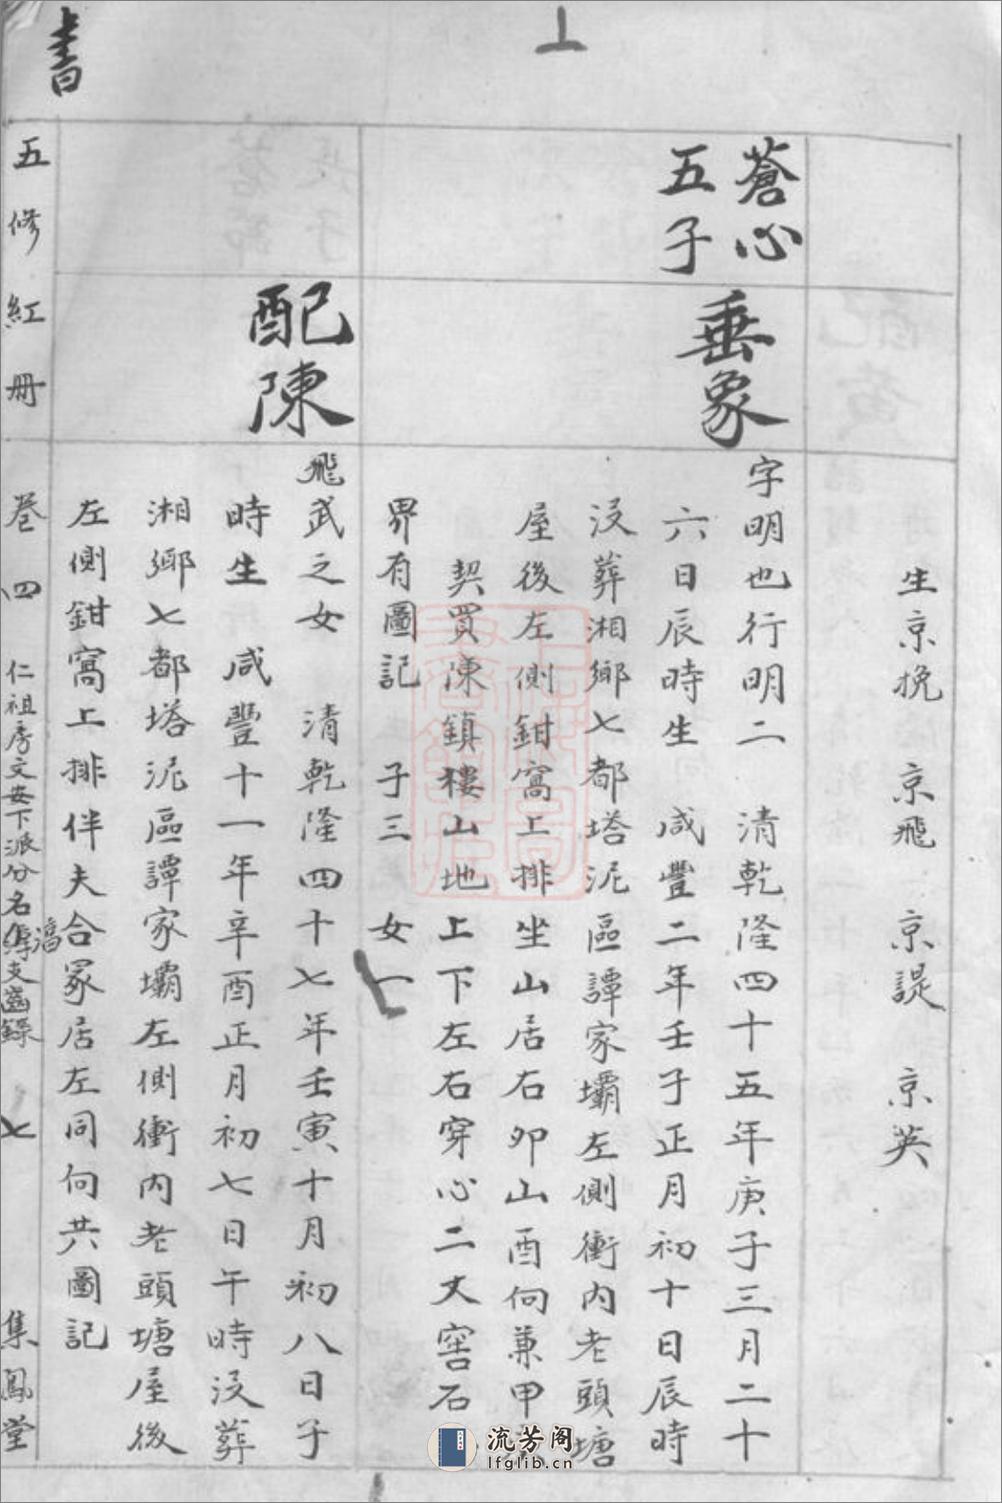 上
生京挽 京飛 京諟 京英
蒼心
五子
垂象
字明也行明二 清乾隆四十五年庚子三月二十
六日辰時生 咸豐二年壬子正月初十日辰時
沒葬湘鄉七都塔泥區譚家壩左側衝內老頭塘
屋後左側鉗窩上排坐山居右卯山酉向兼甲
契買陳鎮樓山地上下左右穿心二丈窖石
界有圖記 子三 女一
配陳
飛武之女 清乾隆四十七年壬寅十月初八日子
時生 咸豐十一年辛酉正月初七日午時沒葬
湘鄉七都塔泥區譚家壩左側衝內老頭塘屋後
左側鉗窩上排伴夫合冢居左同向共圖記
書
五修紅冊 卷四 仁祖房文安下派分名傳支齒錄 七 集鳳堂
流芳阁
lfglib.cn